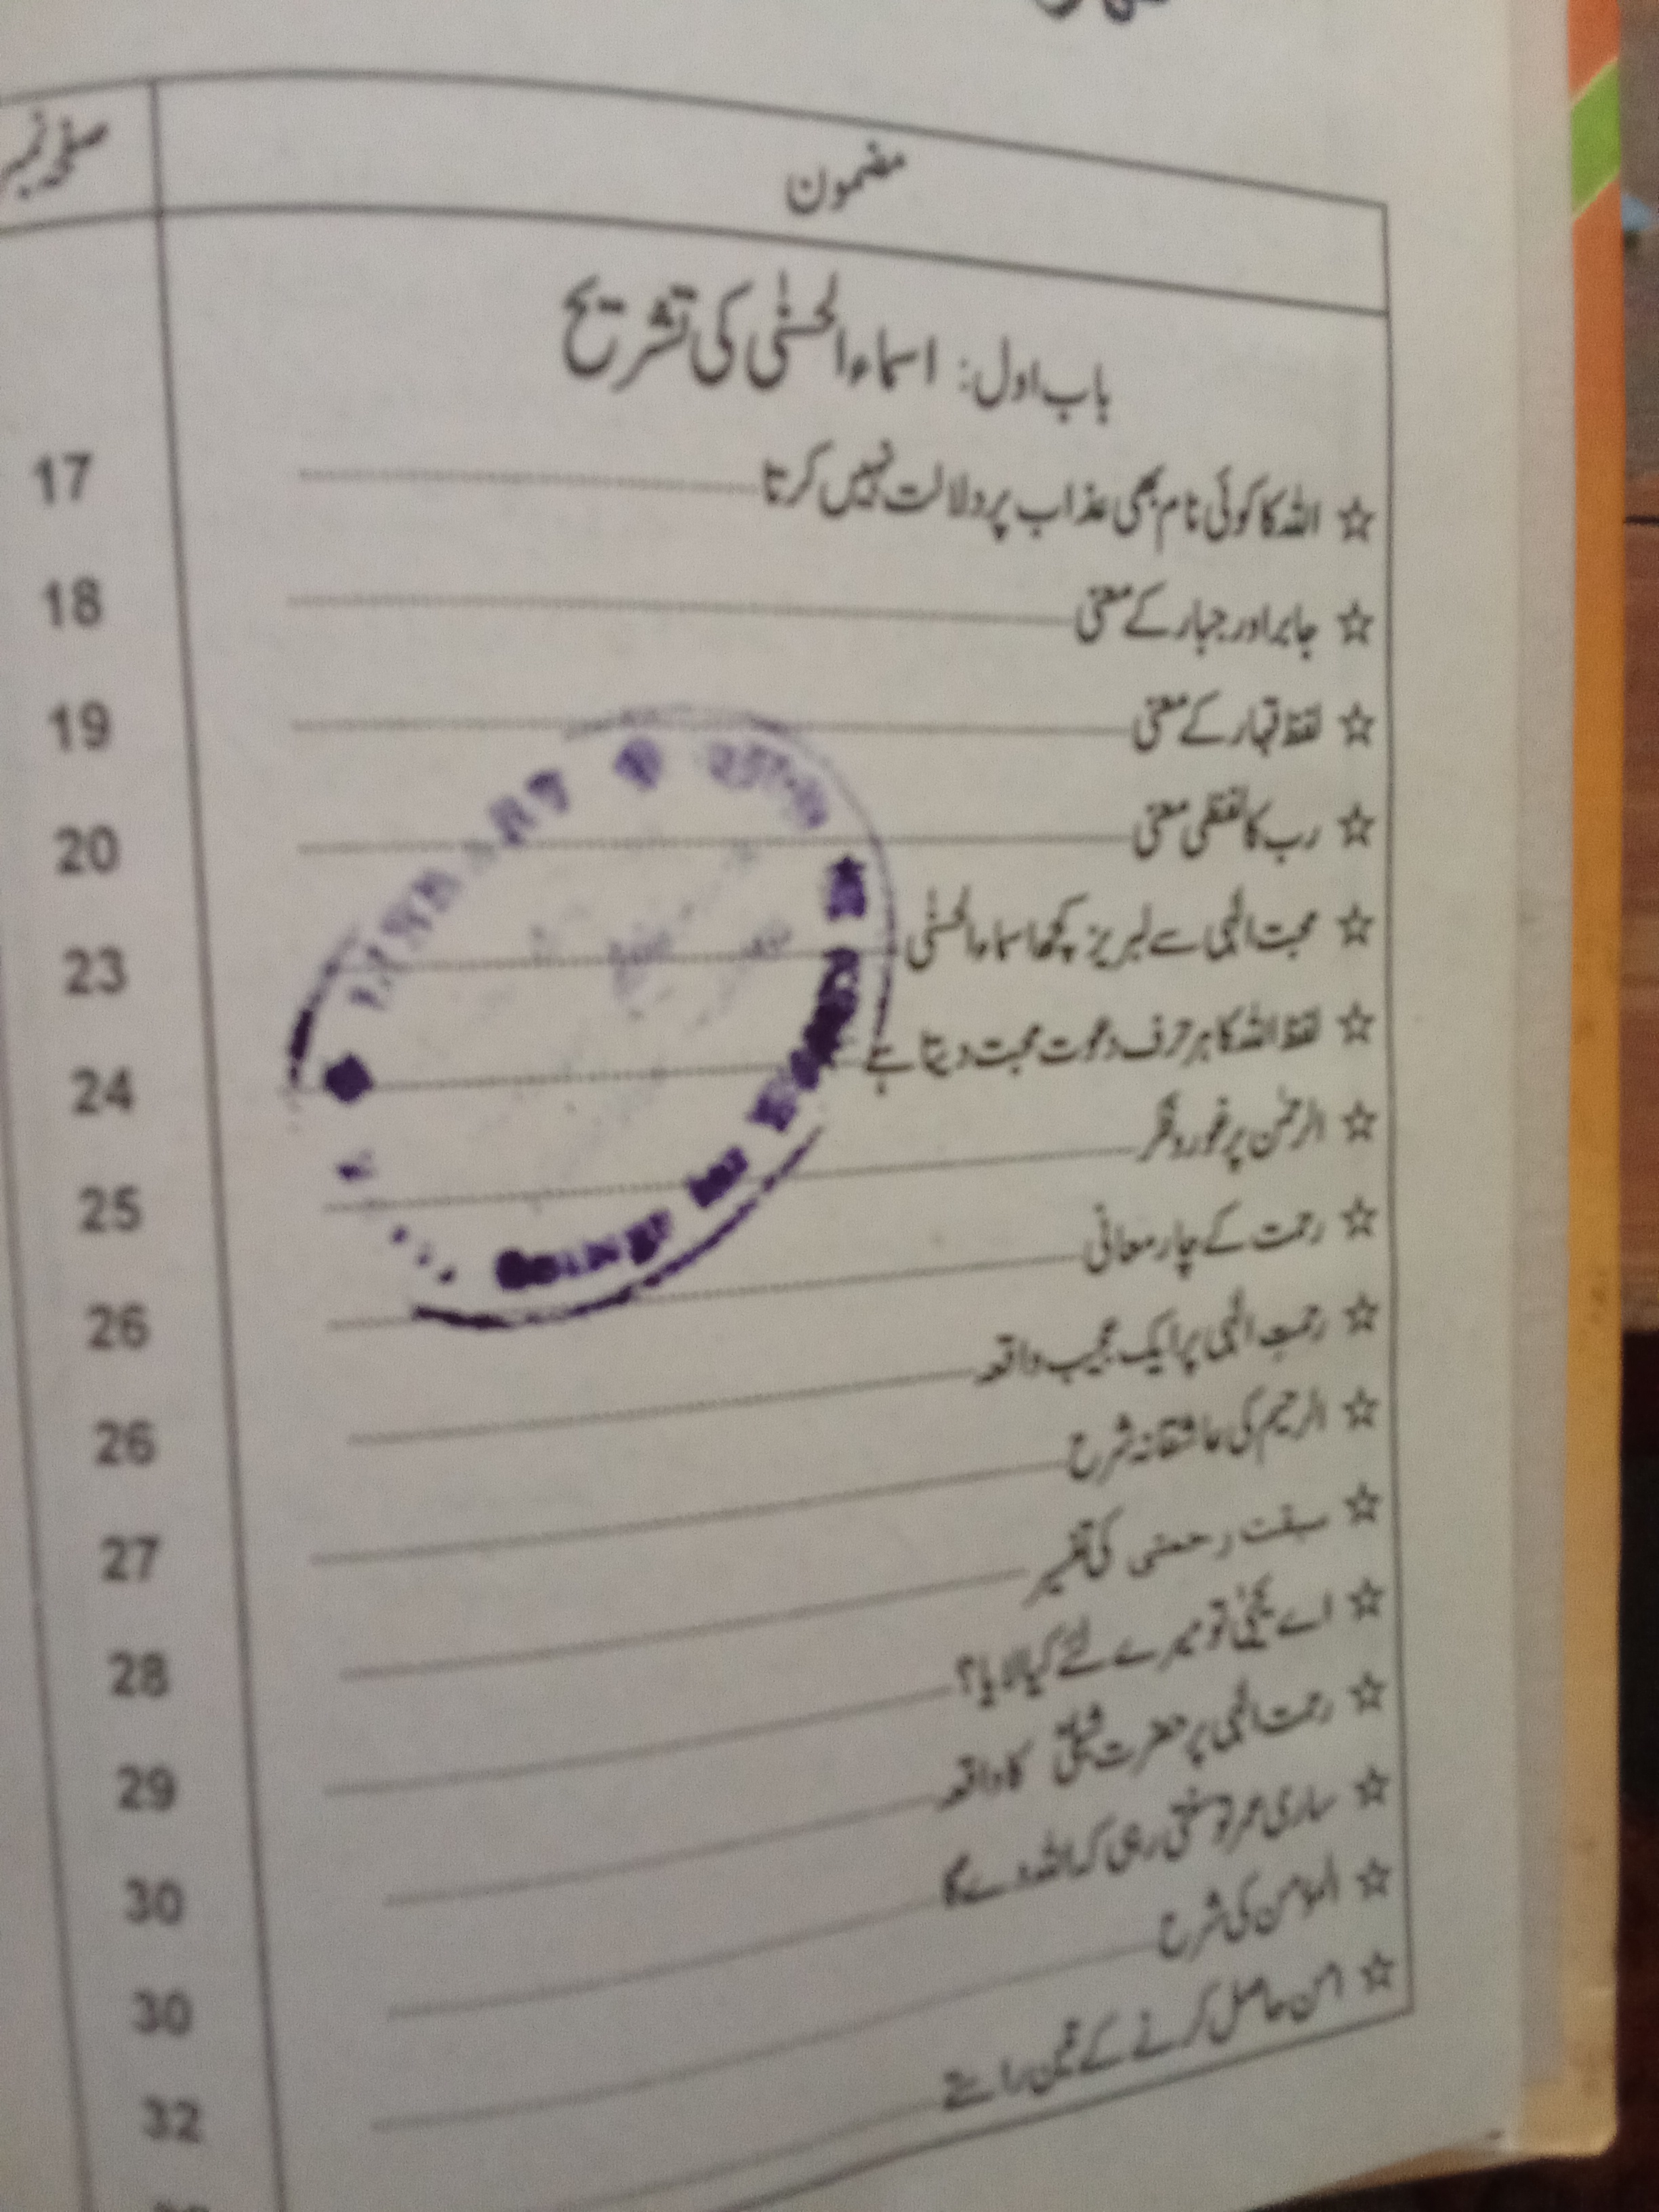 مضمون صفحہ نمبر
باب اول: اسماء الحسنٰی کی تشریح
☆ اللہ کا کوئی نام بھی عذاب پر دلالت نہیں کرتا 17
☆ جابر اور جبار کے معنی 18
☆ لفظ قہار کے معنی 19
☆ رب کا لفظی معنی 20
☆ محبت الٰہی سے لبریز کچھ اسماء الحسنٰی 23
☆ لفظ اللہ کا ہر حرف دعوت محبت دیتا ہے 24
☆ الرحمٰن پر غور و فکر 25
☆ رحمت کے چار معانی 26
☆ رحمتِ الٰہی پر ایک عجیب واقعہ 26
☆ الرحیم کی عاشقانہ شرح 27
☆ سبقت رحمتی کی تفسیر 28
☆ اے یحیٰی تو میرے لئے کیا لایا؟ 29
☆ رحمت الٰہی پر حضرت شبلیؒ کا واقعہ 30
☆ ساری عمر تو سنتی رہی کہ اللہ دے گا 30
☆ المؤمن کی شرح 32
☆ امن حاصل کرنے کے تین راستے
LIBRARY